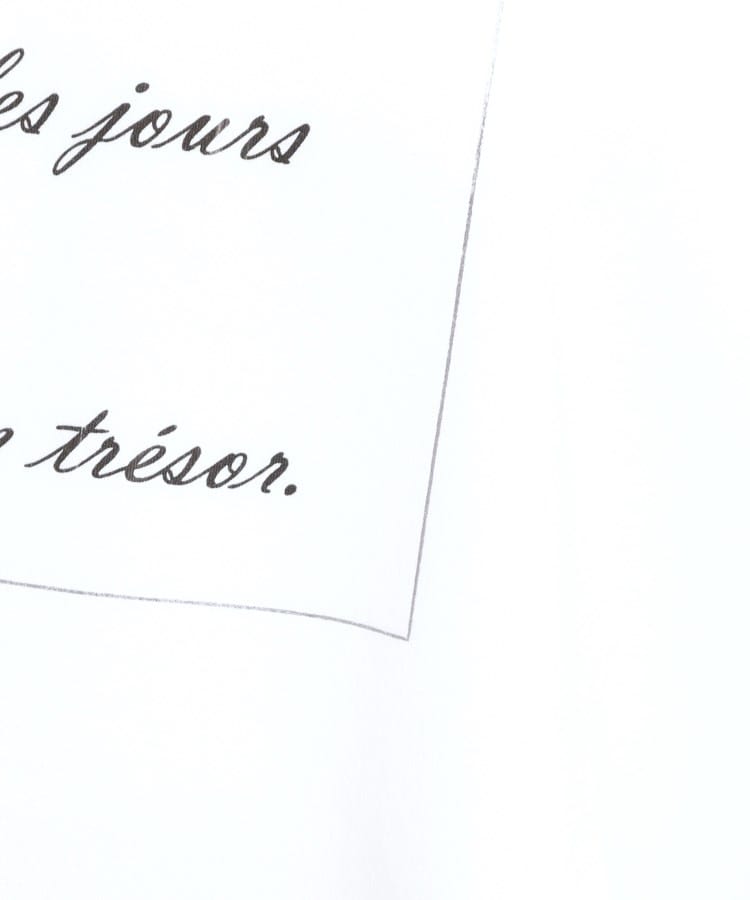 les jours
trésor.